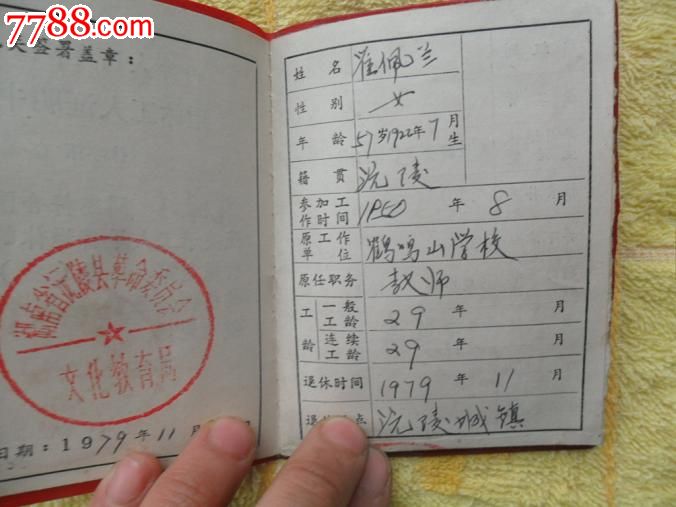 7788.com
签署盖章：
湖南省沅陵县革命委员会
文化教育局
日期：1979年11月
姓名 翟佩兰
性别 女
年龄 57岁1922年7月生
籍贯 沅陵
参加工作时间 1950年8月
原工作单位 鹤鸣山学校
原任职务 教师
工龄 一般工龄 29年 月
连续工龄 29年 月
退休时间 1979年11月
退休地点 沅陵城镇